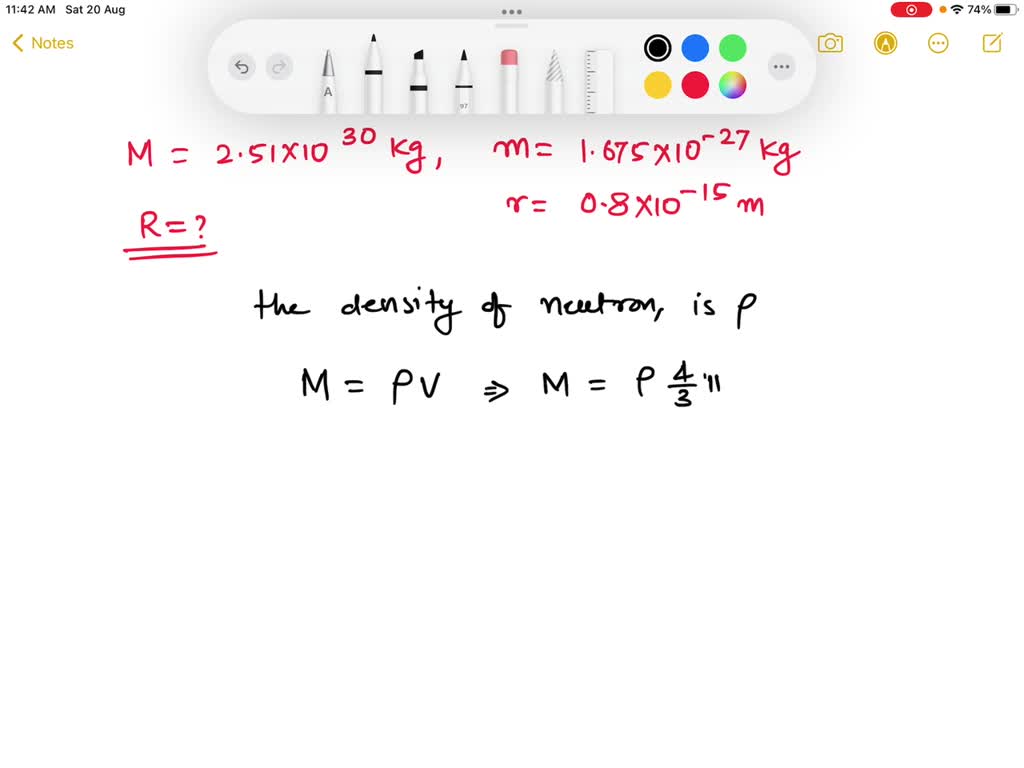 11:42 AM Sat 20 Aug 74%
Notes
A
97
M = 2.51×10³⁰ kg, m = 1.675×10⁻²⁷ kg
r = 0.8×10⁻¹⁵ m
R = ?
the density of neutron, is ρ
M = ρV ⇒ M = ρ 4/3 π